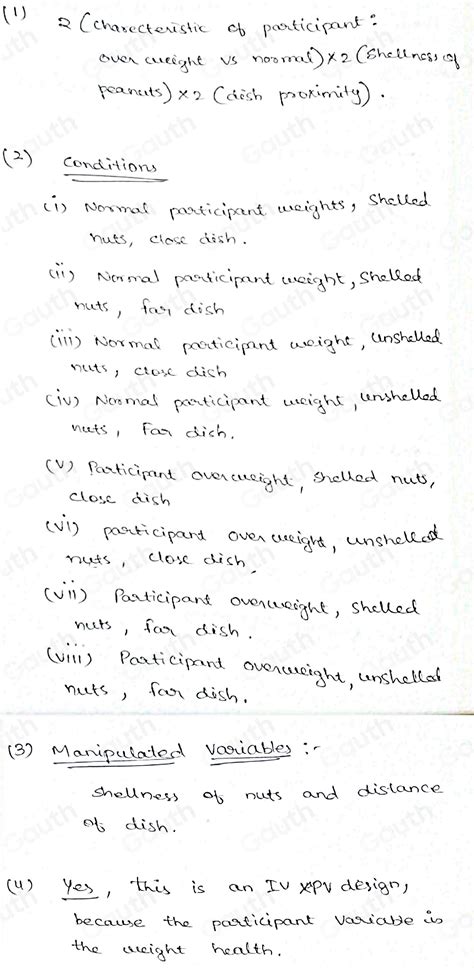 (1) 2 (Charecteristic of participant:
over weight vs normal) x 2 (Shellness of
peanuts) x 2 (dish proximity).
(2) Conditions
(i) Normal participant weights, Shelled
nuts, close dish.
(ii) Normal participant weight, Shelled
nuts, far dish
(iii) Normal participant weight, unshelled
nuts, close dish
(iv) Normal participant weight, unshelled
nuts, Far dish.
(v) Participant overweight, Shelled nuts,
close dish
(vi) participant over weight, unshelled
nuts, close dish.
(vii) Participant overweight, shelled
nuts, far dish.
(viii) Participant overweight, unshelled
nuts, far dish.
(3) Manipulated variables :-
Shellness of nuts and distance
of dish.
(4) Yes, this is an IV xPV design,
because the participant variable is
the weight health.